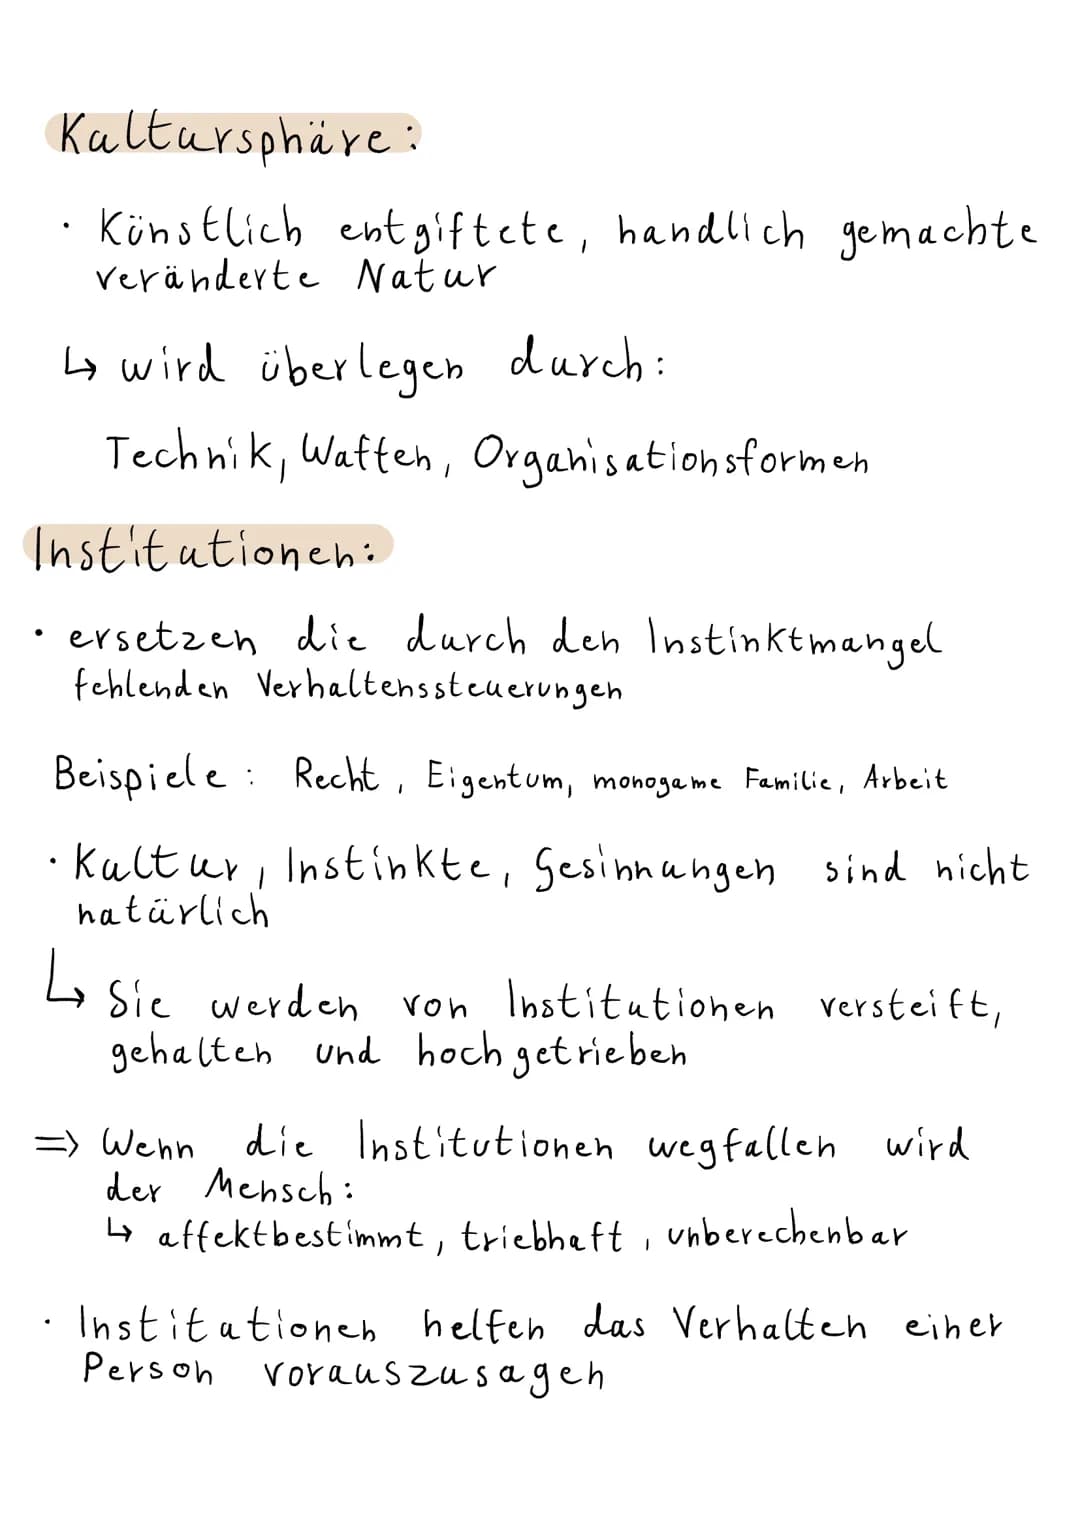 Kultursphäre:
· Künstlich entgiftete, handlich gemachte
veränderte Natur
↳ wird überlegen durch:
Technik, Waffen, Organisationsformen
Institutionen:
· ersetzen die durch den Instinktmangel
fehlenden Verhaltenssteuerungen
Beispiele: Recht, Eigentum, monogame Familie, Arbeit
· Kultur, Instinkte, Gesinnungen sind nicht
natürlich
↳ Sie werden von Institutionen versteift,
gehalten und hochgetrieben
=> Wenn die Institutionen wegfallen wird
der Mensch:
↳ affektbestimmt, triebhaft, unberechenbar
· Institutionen helfen das Verhalten einer
Person vorauszusagen